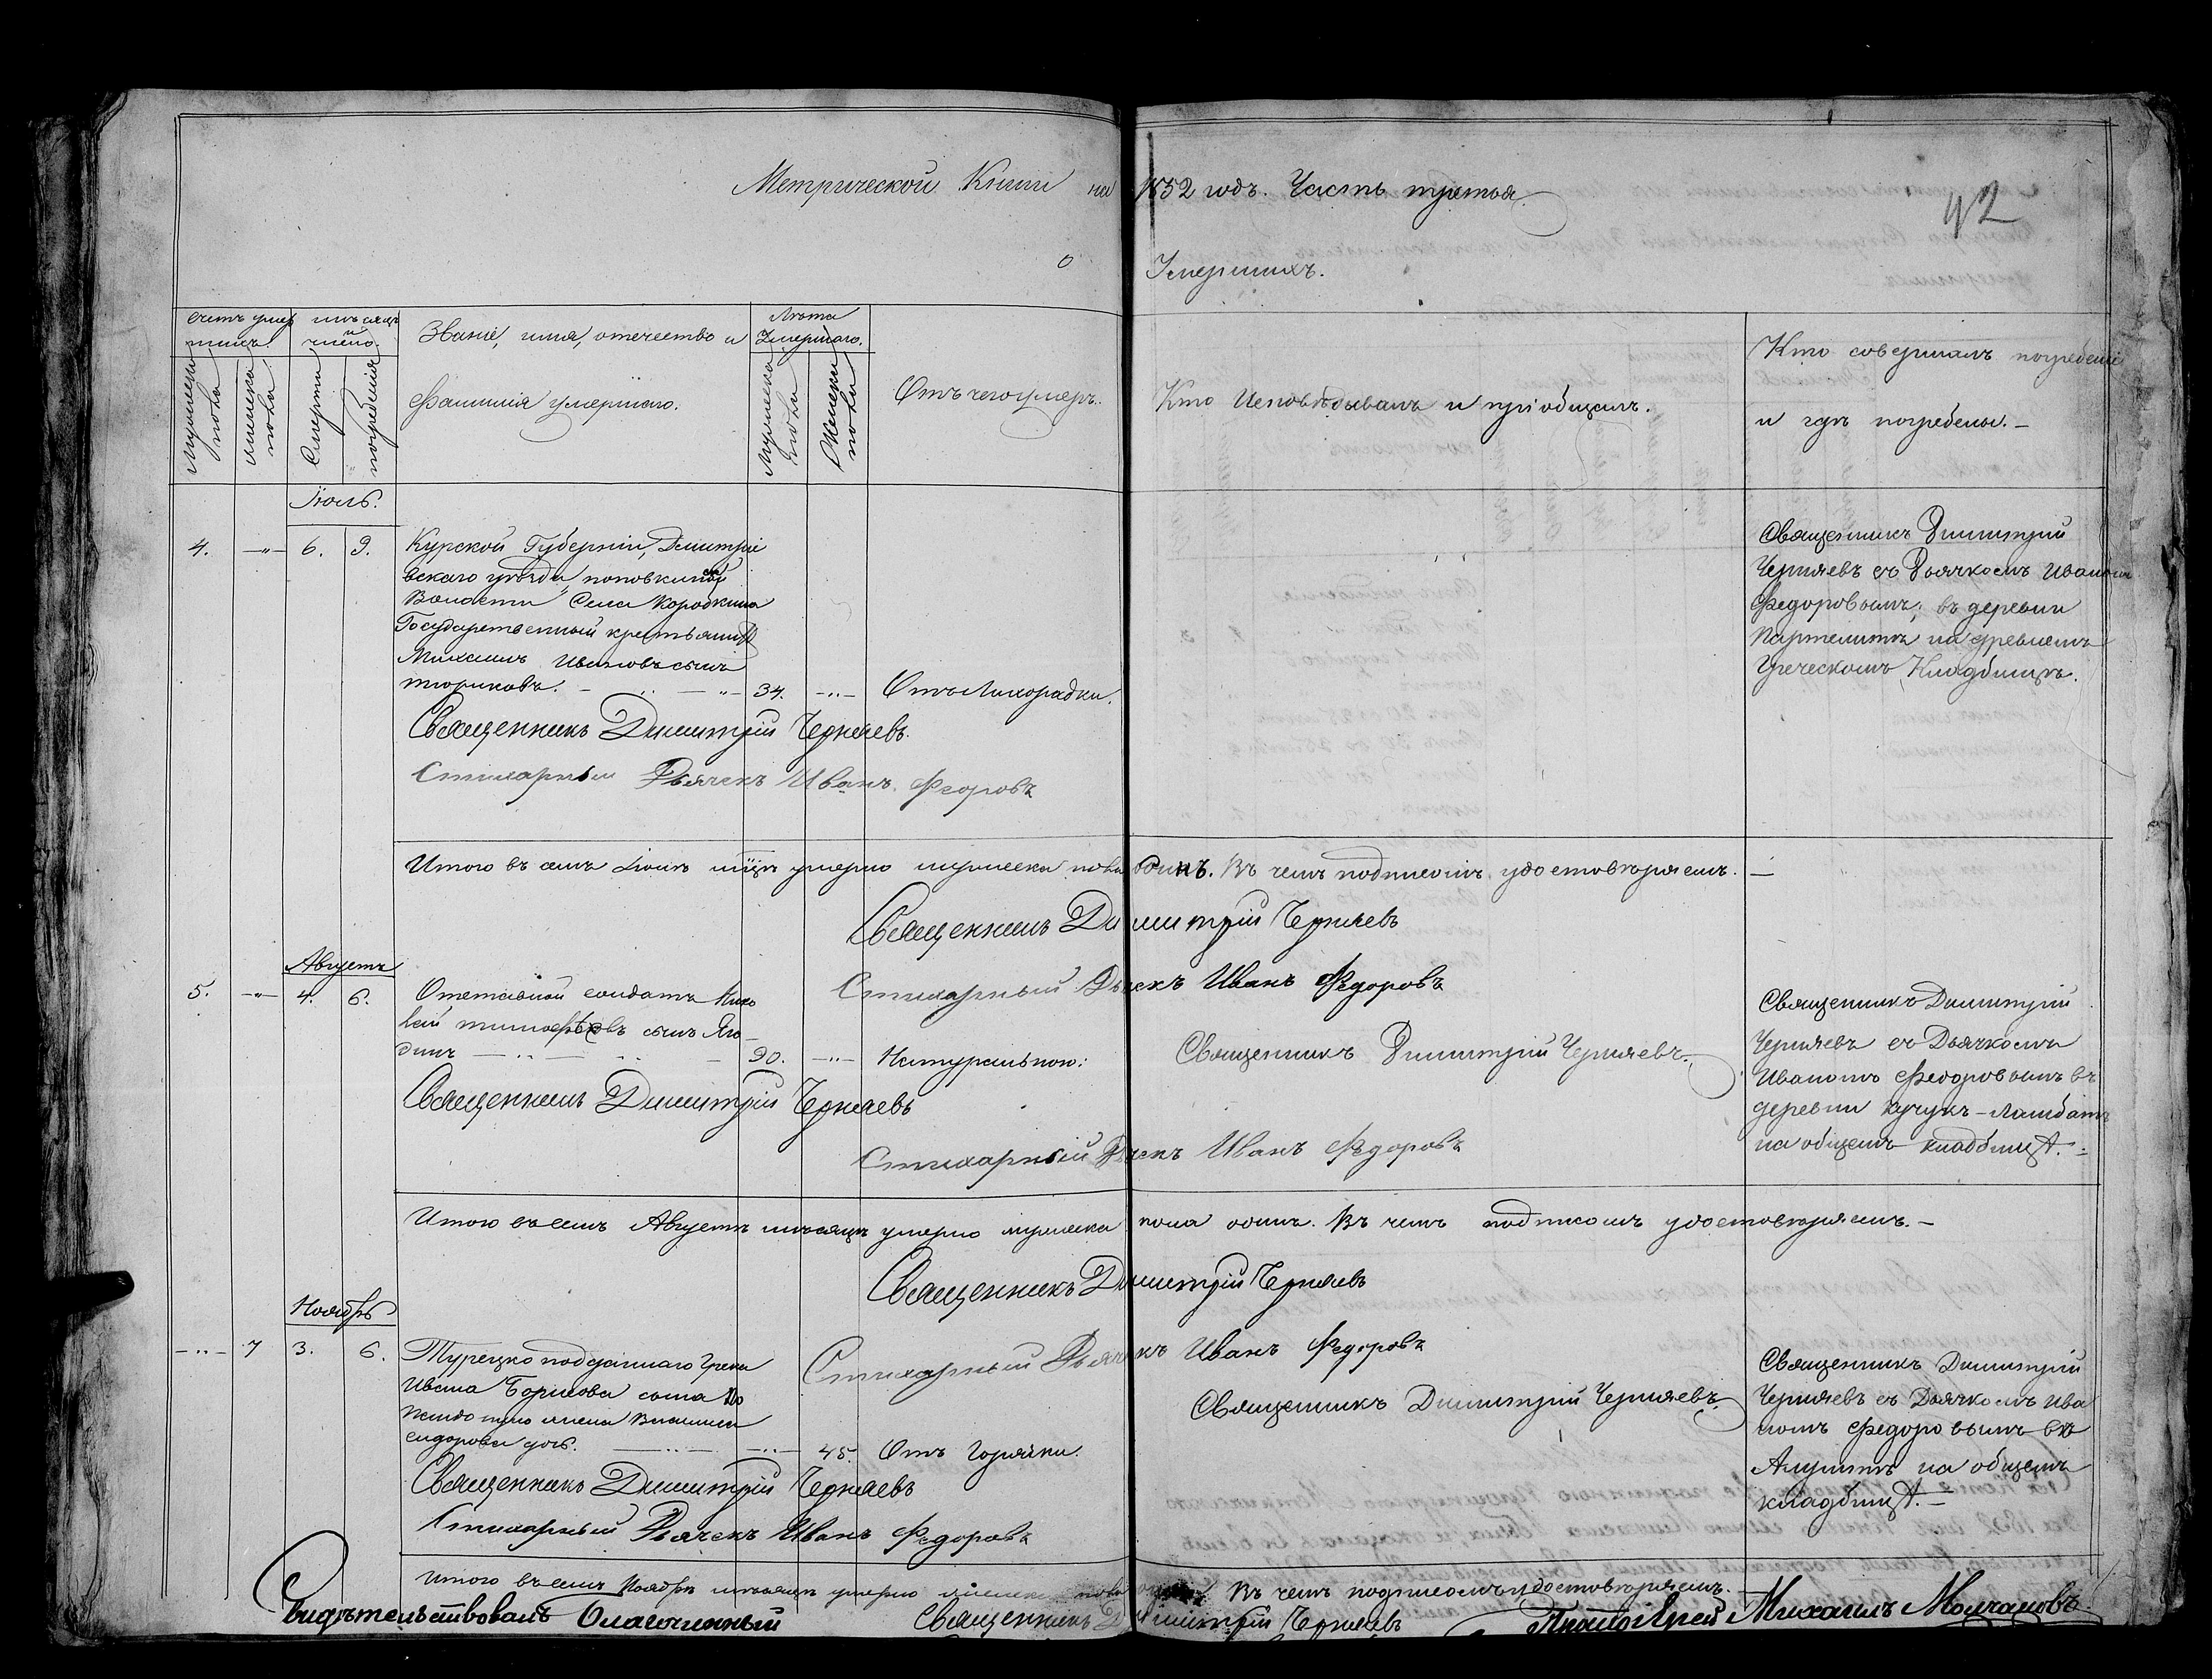 Метрической Книги на 1852 годъ. Часть третья
42
о Умершихъ.
счетъ умер
шихъ.
Мужеска
пола
женска
пола
мѣсяцъ
и
число.
Смерти
погребенія
Званіе, имя, отечество и
фамилія умершаго.
Лѣта
Умершаго.
Мужеска
пола
Женска
пола
Отъ чего умеръ.
Кто Исповѣдывалъ и пріобщалъ.
Кто совершалъ погребеніе
и гдѣ погребены. –
Іюль.
4. –"– 6. 9.
Курской Губерніи, Дмитріе
вскаго уѣзда,
Волости Села Коробкина
Государственный крестьянинъ
Михаилъ Ивановъ сынъ
34. –"– Отъ Лихорадки.
Священникъ Димитрій
Черняевъ съ Дьячкомъ Иваномъ
Федоровымъ; въ деревни
Партенитѣ на древнемъ
Греческомъ Кладбищѣ.
Священникъ Димитрій Черняевъ.
Стихарный Дьячекъ Иванъ Федоровъ
Итого въ семъ Іюлѣ мцѣ умерло мужеска пола одинъ. Въ чемъ подписомъ удостовѣряемъ. –
Священникъ Димитрій Черняевъ
Стихарный Дьячекъ Иванъ Федоровъ
Августъ
5. –"– 4. 6.
Отставной солдатъ
сынъ
динъ 90. –"– Натуральною:
Священникъ Димитрій Черняевъ.
Священникъ Димитрій
Черняевъ съ Дьячкомъ
Иваномъ Федоровымъ въ
деревни Кучукъ-Ламбатъ
на общемъ кладбищѣ. –
Священникъ Димитрій Черняевъ
Стихарный Дьячекъ Иванъ Федоровъ
Итого въ семъ Августѣ мѣсяцѣ умерло мужеска пола одинъ. Въ чемъ подписомъ удостовѣряемъ. –
Священникъ Димитрій Черняевъ
Стихарный Дьячекъ Иванъ Федоровъ
Ноябрь
–"– 7 3. 6.
Турецко подданнаго Грека
Ивана Борисова сына
жена
сидорова дочь. –"– 45. Отъ Горячки.
Священникъ Димитрій Черняевъ.
Священникъ Димитрій
Черняевъ съ Дьячкомъ Ива
номъ Федоровымъ въ
Алуштѣ на общемъ
кладбищѣ. –
Священникъ Димитрій Черняевъ
Стихарный Дьячекъ Иванъ Федоровъ
Итого въ семъ Ноябрѣ мѣсяцѣ умерло женска пола Въ чемъ подписомъ удостовѣряемъ.
Священникъ Димитрій Черняевъ
Свидѣтельствовалъ Благочинный
Протоіерей Михаилъ Молчановъ